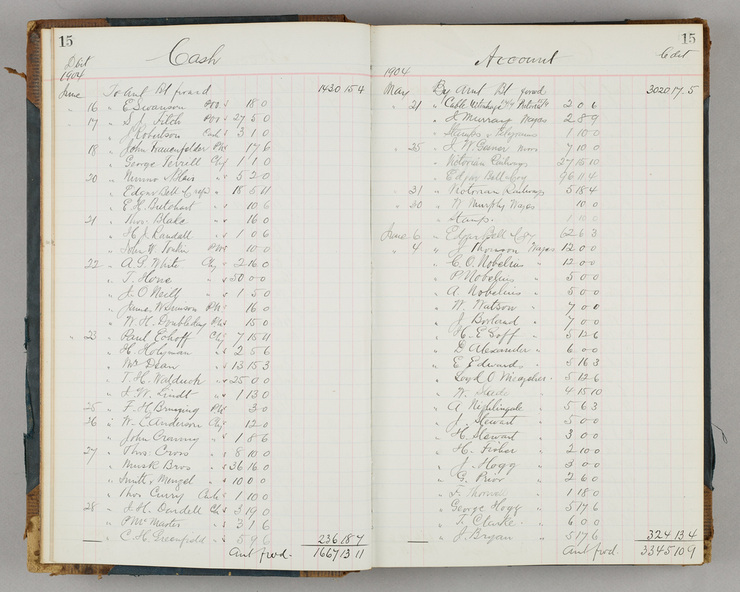 15
Cash
Debt
1904
June To Amt Bt forward 1430 15 4
" 16 " E Swanson P.O. " 18 0
17 " S. J. Fitch P.O. " 27 5 0
" J Robertson Cash " 3 10
18 " John Frauenfelder PN 17 6
" George Terrell Chq 1 1 0
20 " Nimmo & Blair " 5 2 0
" Edgar Bell & Coy " 18 8 11
" E H. Butchart " 10 6
21 " Thos. Blake " 16 0
" H J. Randall " 1 0 6
" John W. Tonkin 10 0
22 " A. G. White Chq " 2 16 0
" T. Hone " 50 0 0
" J. O'Neill " 1 5 0
" James W Simson PN 16 0
" W. H. Doubleday 15 0
" 23 " Paul Echoff Chq 7 15 11
" H. Holyman " 2 5 6
" Mr Dean " 13 15 3
" T. H. Waddick " 25 0 0
" J. W. Lindt " 1 13 0
25 " F. H. Bruning PN 3 0
26 " W. E Anderson Chq 12 0
" John Cranny " 1 8 6
27 " Thos. Cross " 8 10 0
" Musk Bros " 36 16 0
" Smith & Mengel " 10 0 0
" Thos Curry Cash 1 10 0
28 " J. H. Dardell Ch 3 19 0
" P Mc Master " 3 1 6
" C. H. Greenfield " 5 9 6 236 18 7
Amt fwd. 1667 13 11
15
Account
Credit
1904
May By Amt Bt forwd 3020 17 5
" 21 " 2 0 6
" J Murray Wages 2 8 9
" Stamps & Telegrams 1 10 0
" 25 " J. W. 7 10 0
" Victorian Railways 27 15 10
" Edgar Bell & Coy 96 11 4
" 31 " Victorian Railways 5 18 4
" 30 " W Murphy Wages 10 0
" Stamps 1 10 0
June 6 " Edgar Bell & Coy 62 6 3
" 4 " Thomson Wages 12 0 0
" C. O. Nobelius " 12 0 0
" P Nobelius " 5 0 0
" A. Nobelius " 5 0 0
" W. Watson " 7 0 0
" J Borland " 7 0 0
" H. E Goff " 5 12 6
" D Alexander " 6 0 0
" E Edwards " 5 16 3
" Loyd O " 5 12 6
" W. 4 15 10
" A Nightingale " 5 6 3
" J. Stewart " 5 0 0
" H Stewart " 3 0 0
" H. Fisher " 2 10 0
" J. Hogg " 3 0 0
" G. Prior " 2 6 0
" F. Thomas " 1 18 0
" George Hogg " 5 17 6
" T. Clarke " 6 0 0
" J. Bryan " 5 17 6 324 13 4
Amt fwd. 3345 10 9